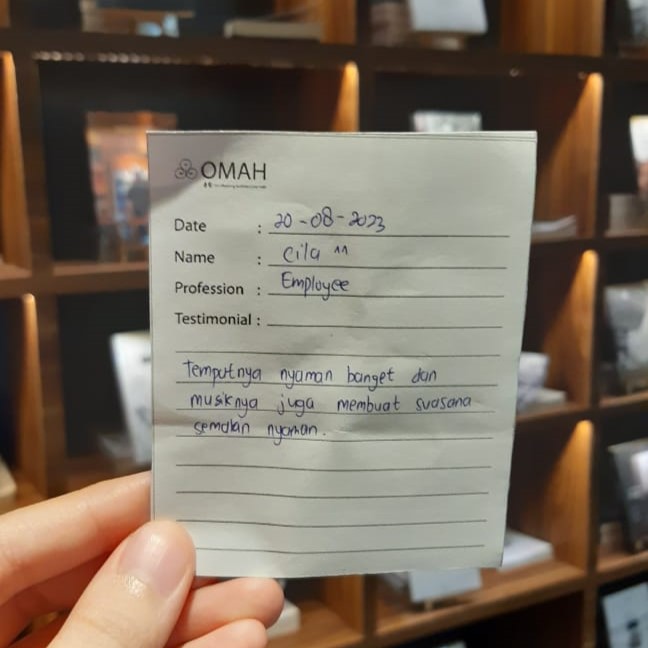 OMAH
Date : 20-08-2023
Name : Cila ^^
Profession : Employee
Testimonial :
Tempatnya nyaman banget dan
musiknya juga membuat suasana
semakin nyaman.